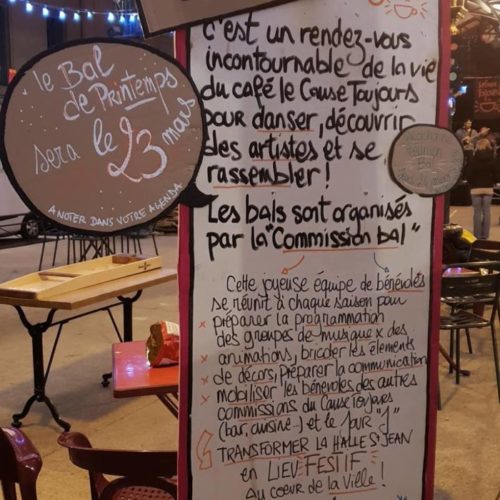 le Bal
de Printemps
sera le
23 mars
A NOTER DANS VOTRE AGENDA
c'est un rendez-vous
incontournable de la vie
du café le Cause Toujours
pour danser, découvrir
des artistes et se
rassembler !
Les bals sont organisés
par la "Commission bal"
Cette joyeuse équipe de bénévoles
se réunit à chaque saison pour
x préparer la programmation
des groupes de musique x des
x animations, bricoler les éléments
x de décors, préparer la communication
x mobiliser les bénévoles des autres
commissions du Cause Toujours
(bar, cuisine..) et le jour "J"
TRANSFORMER LA HALLE ST JEAN
en LIEU FESTIF
AU COEUR DE LA VILLE !
Réunion
Bal